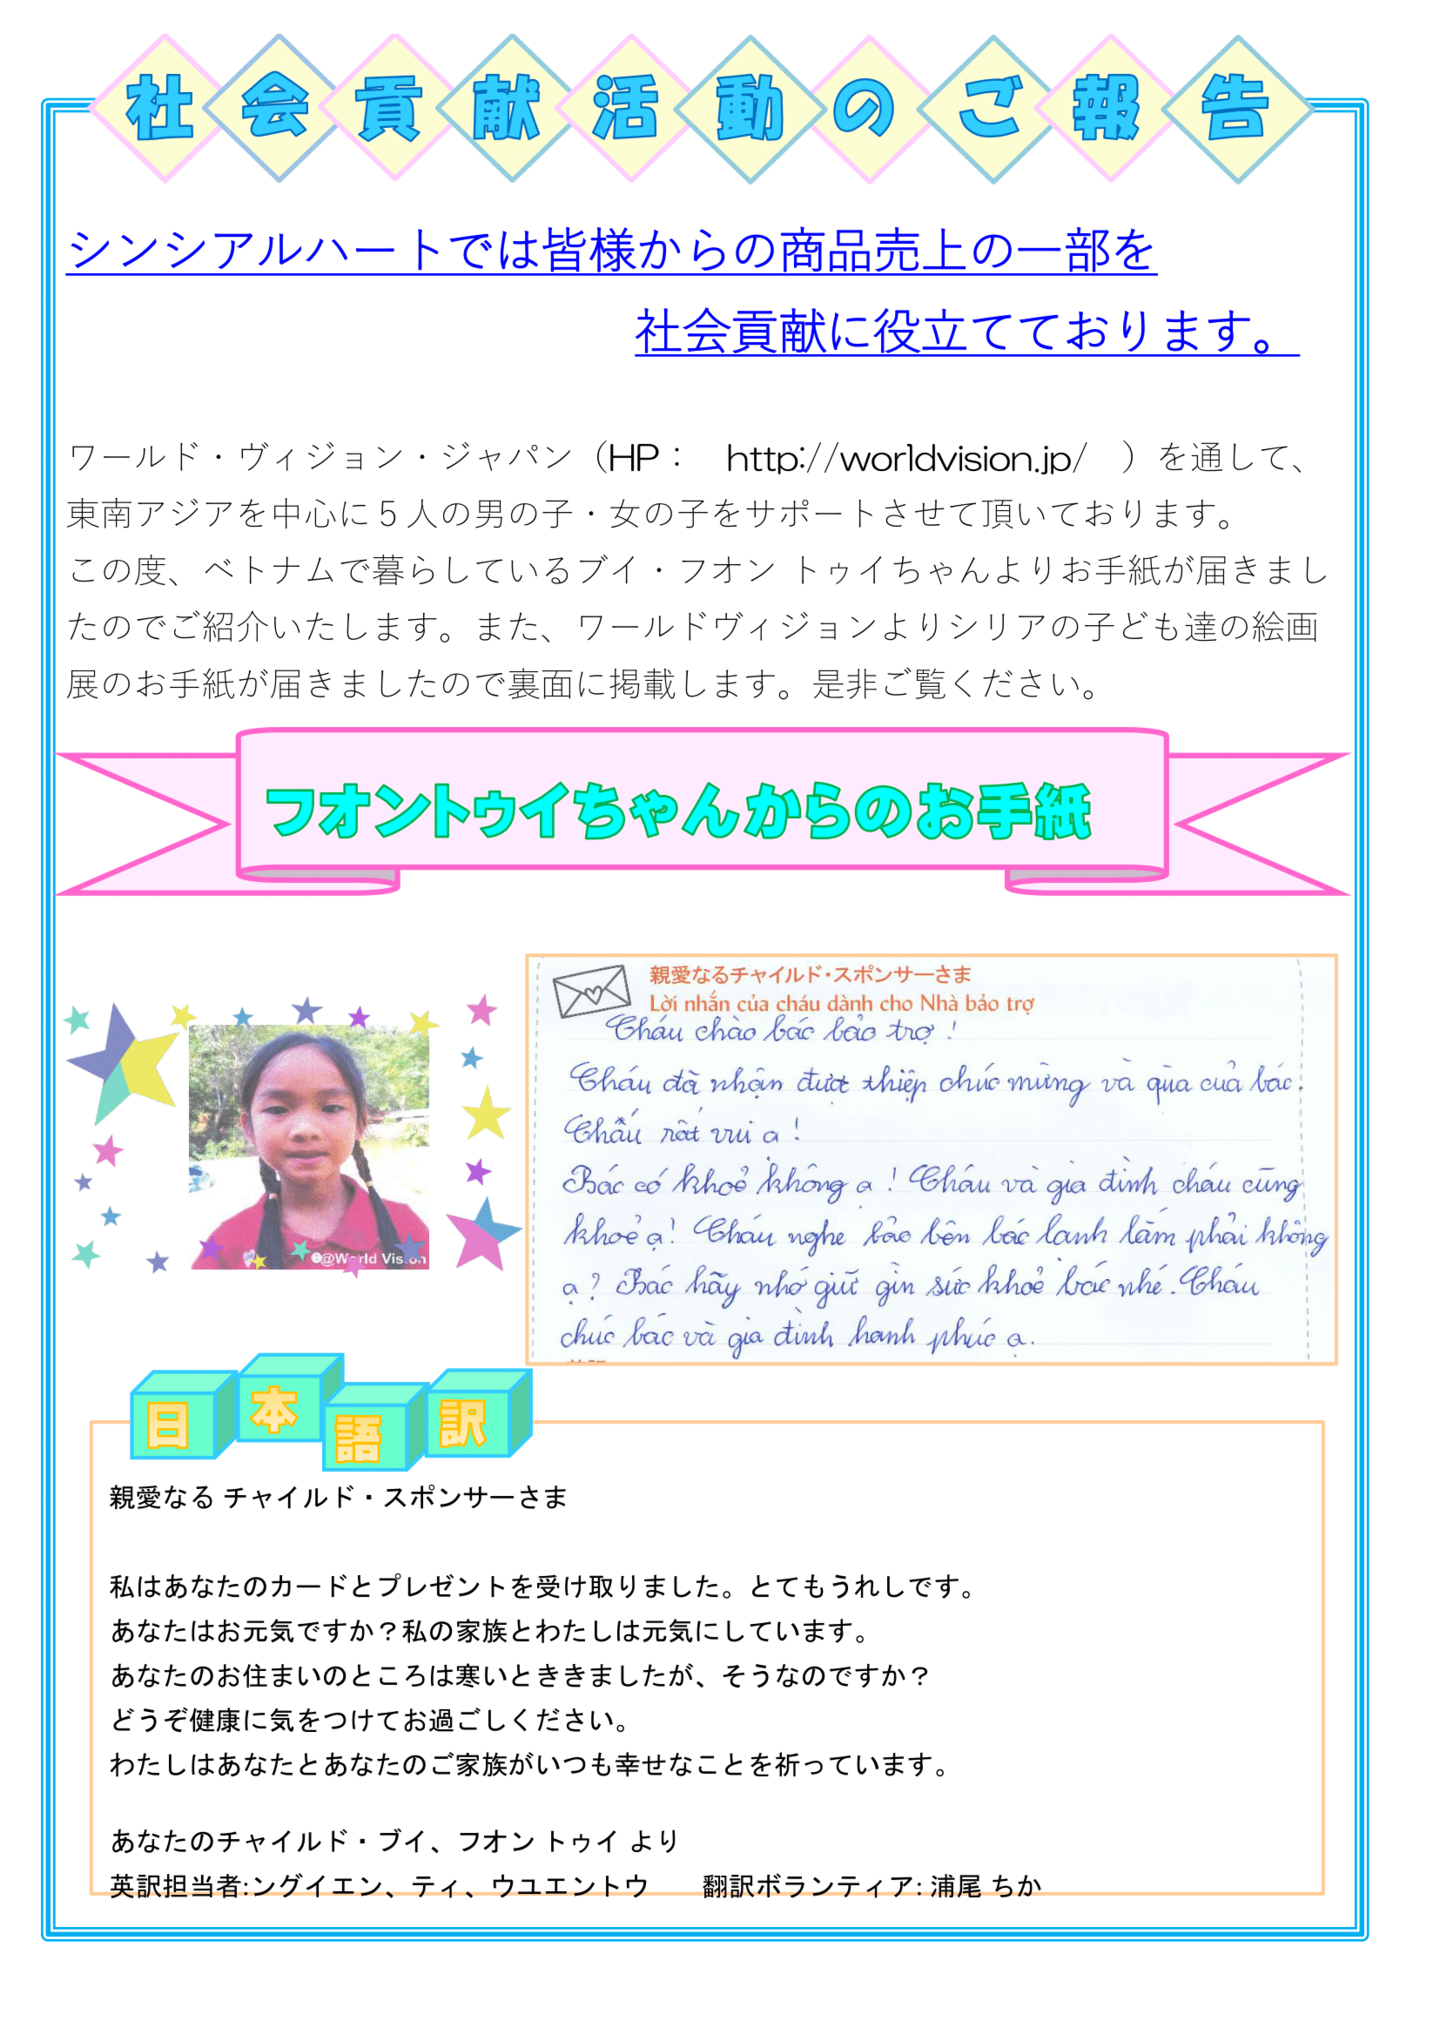 社会貢献活動のご報告
シンシアルハートでは皆様からの商品売上の一部を
社会貢献に役立てております。
ワールド・ヴィジョン・ジャパン（HP： http://worldvision.jp/ ）を通して、
東南アジアを中心に５人の男の子・女の子をサポートさせて頂いております。
この度、ベトナムで暮らしているブイ・フオン トゥイちゃんよりお手紙が届きまし
たのでご紹介いたします。また、ワールドヴィジョンよりシリアの子ども達の絵画
展のお手紙が届きましたので裏面に掲載します。是非ご覧ください。
フオントゥイちゃんからのお手紙
親愛なるチャイルド・スポンサーさま
Lời nhắn của cháu dành cho Nhà bảo trợ
Cháu chào bác bảo trợ !
Cháu đã nhận được thiệp chúc mừng và qùa cuả bác.
Cháu rất vui ạ !
Bác có khoẻ không ạ ! Cháu và gia đình cháu cũng
khoẻ ạ! Cháu nghe bảo bên bác lạnh lắm phải không
ạ ? Bác hãy nhớ giữ gìn sức khoẻ bác nhé. Cháu
chúc bác và gia đình hạnh phúc ạ.
@World Vision
日本語訳
親愛なる チャイルド・スポンサーさま
私はあなたのカードとプレゼントを受け取りました。とてもうれしです。
あなたはお元気ですか？私の家族とわたしは元気にしています。
あなたのお住まいのところは寒いとききましたが、そうなのですか？
どうぞ健康に気をつけてお過ごしください。
わたしはあなたとあなたのご家族がいつも幸せなことを祈っています。
あなたのチャイルド・ブイ、フオン トゥイ より
英訳担当者:ングイエン、ティ、ウユエントウ 翻訳ボランティア: 浦尾 ちか